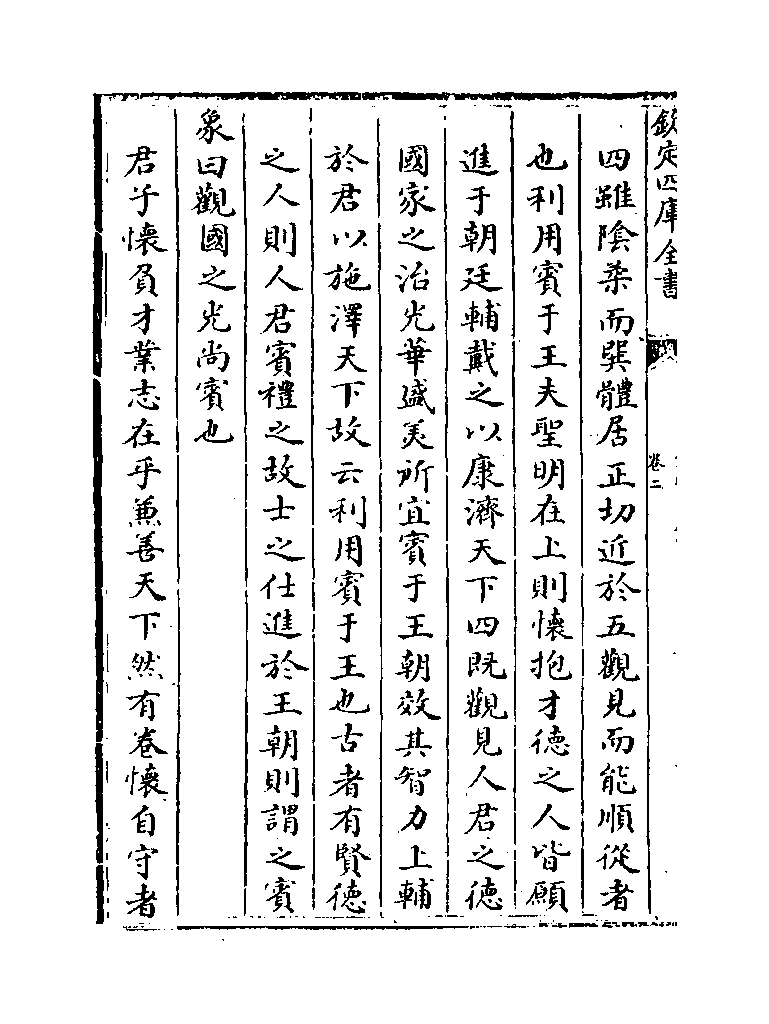 欽定四庫全書
卷二
四雖陰柔而巽體居正切近於五觀見而能順從者
也利用賓于王夫聖明在上則懷抱才德之人皆願
進于朝廷輔戴之以康濟天下四既觀見人君之德
國家之治光華盛美所宜賓于王朝效其智力上輔
於君以施澤天下故云利用賓于王也古者有賢德
之人則人君賓禮之故士之仕進於王朝則謂之賓
象曰觀國之光尚賓也
君子懷負才業志在乎兼善天下然有卷懷自守者